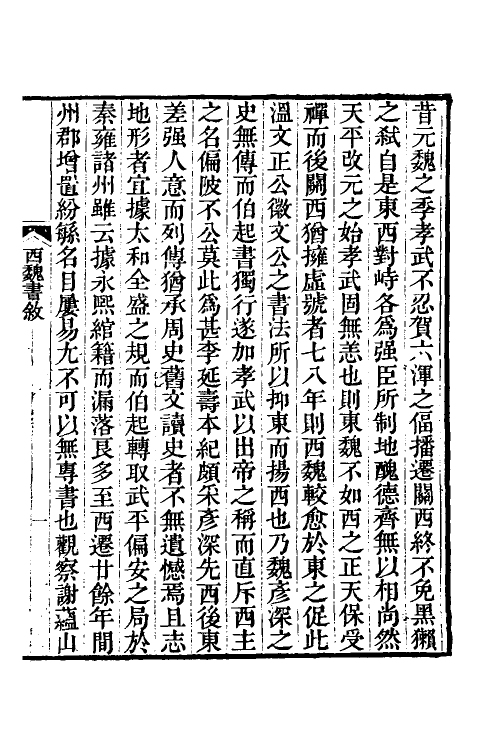 昔元魏之季孝武不忍賀六渾之偪播遷關西終不免黑獺
之弒自是東西對峙各爲强臣所制地醜德齊無以相尚然
天平改元之始孝武固無恙也則東魏不如西之正天保受
禪而後關西猶擁虛號者七八年則西魏較愈於東之促此
溫文正公徵文公之書法所以抑東而揚西也乃魏彥深之
史無傳而伯起書獨行遂加孝武以出帝之稱而直斥西主
之名偏陂不公莫此爲甚李延壽本紀頗采彥深先西後東
差强人意而列傳猶承周史舊文讀史者不無遺憾焉且志
地形者宜據太和全盛之規而伯起轉取武平偏安之局於
秦雍諸州雖云據永熙綰籍而漏落㠯多至西遷廿餘年間
州郡增置紛緐名目屢易尤不可以無專書也觀察謝蘊山
西魏書敘
一